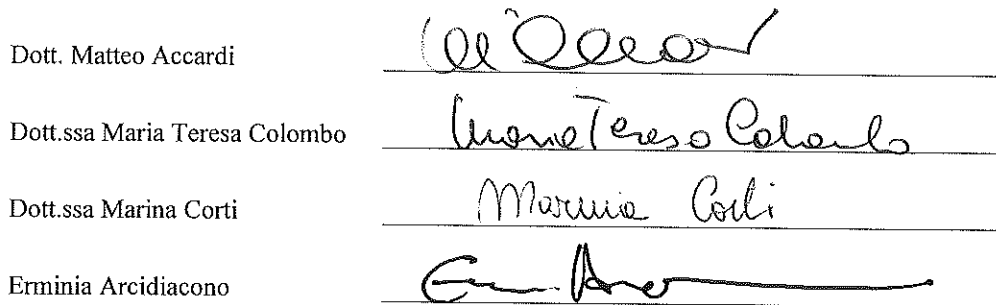 Dott. Matteo Accardi
Dott.ssa Maria Teresa Colombo Maria Teresa Colombo
Dott.ssa Marina Corti Marina Corti
Erminia Arcidiacono